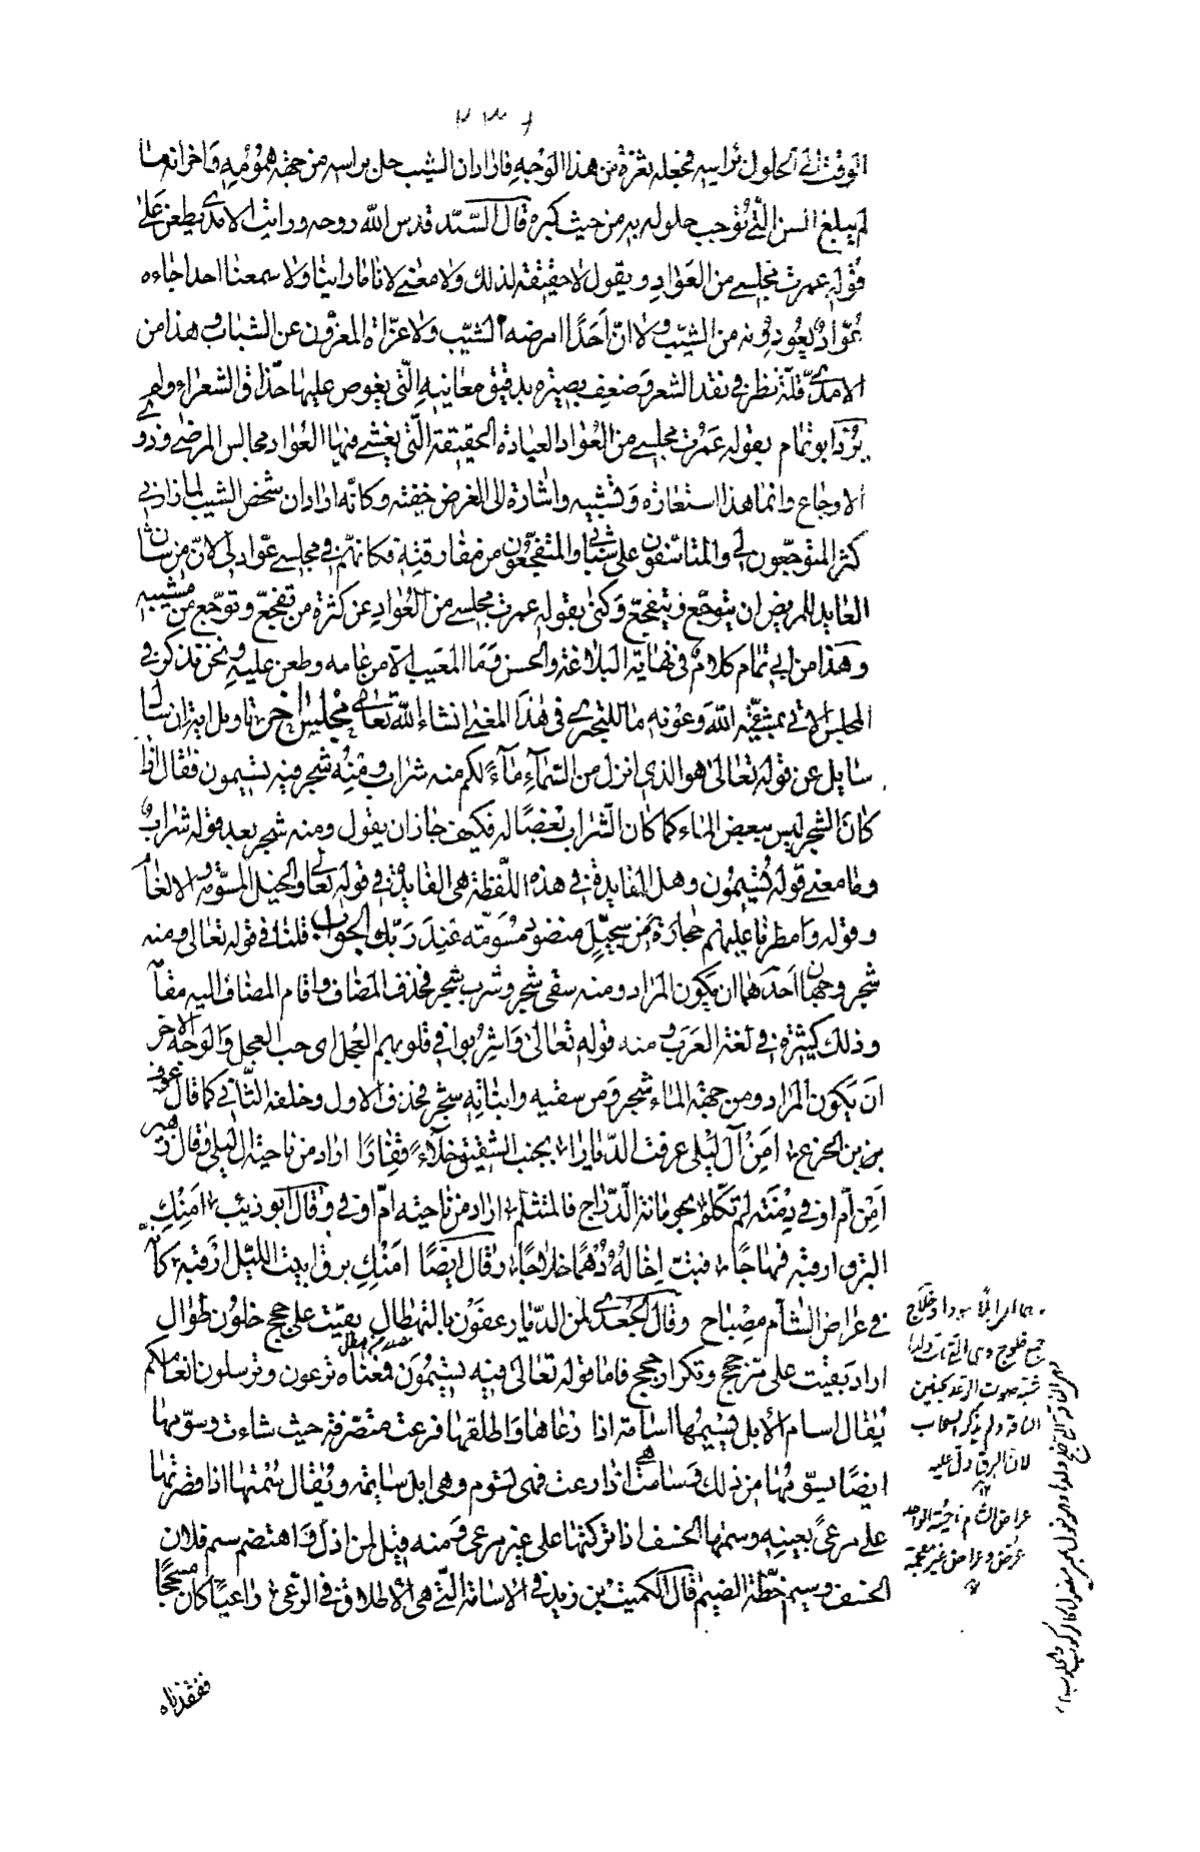 الوقت الى الحلول براسه فجعله ثغرة من هذا الوجه فاراد ان الشيب حل براسه من جهة همومه واحزانه لما
لم يبلغ السن التي توجب حلوله به من حيث كبره قال السيد قدس الله روحه ورايت الامدى يطعن على
قوله عمرت مجلسي من العواد ويقول لا حقيقة لذلك ولا معنى لانا ما راينا ولا سمعنا احدا جاءه
عواد يعودونه من الشيب ولا ان احدا امرضه الشيب ولا عزاه المعزون عن الشباب وهذا من
الامدى قلة نظر في نقد الشعر وضعف بصيرة بدقيق معانيه التي يغوص عليها حذاق الشعراء ولم
يرد ابو تمام بقوله عمرت مجلسي من العواد العيادة الحقيقة التي يغشى فيها العواد مجالس المرضى وذوي
الاوجاع وانما هذا استعارة وتشبيه واشارة الى الغرض خفية وكانه اراد ان شخص الشيب لما زارني
كثر المتوجعون لي والمتاسفون على شبابي والمتفجعون من مفارقته فكانهم في مجلسي عواد لي لان من شان
العايد للمريض ان يتوجع ويتفجع وكنى بقوله عمرت مجلسي من العواد عن كثرة من تفجع وتوجع من مشيبه
وهذا من ابي تمام كلام في نهاية البلاغة والحسن وما المعيب الا من عابه وطعن عليه ونحن نذكر في
المجلس الاتي بمشية الله وعونه ما للبحتري في هذا المعنى انشاء الله تعالى مجلس اخر تاويل اية ان سال
سايل عن قوله تعالى هو الذي انزل من السماء ماء لكم منه شراب ومنه شجر فيه تسيمون فقال اذا
كان الشجر ليس ببعض الماء كما كان الشراب بعضا له فكيف جاز ان يقول ومنه شجر بعد قوله شراب
وما معنى قوله تسيمون وهل الفايدة في هذه اللفظة هي الفايدة في قوله تعالى والخيل المسومة والانعام
وقوله وامطرنا عليهم حجارة من سجيل منضود مسومة عند ربك الجواب قلنا في قوله تعالى ومنه
شجر وجهان احدهما ان يكون المراد ومنه سقى شجر وشرب شجر فحذف المضاف واقام المضاف اليه مقامه
وذلك كثير في لغة العرب ومنه قوله تعالى واشربوا في قلوبهم العجل اى حب العجل والوجه الاخر
ان يكون المراد ومن جهة الماء شجر ومن سقيه وانباته شجر فحذف الاول وخلفه الثاني كما قال عوف
بن الخرع امن آل ليلى عرفت الديارا بجنب الشقيق خلاء قفارا اراد من ناحية ال ليلى وقال زهير
امن ام اوفى دمنة لم تكلم بحومانة الدراج فالمتثلم اراد من ناحية ام اوفى وقال ابو ذئيب امنك
البرق ارقبه فهاجا فبت اخاله دهما خلاجا وقال ايضا امنك برق ابيت الليل ارقبه كانه
في عراض الشام مصباح وقال الجعدى لمن الديار عفون بالتهطال بقيت على حجج خلون طوال
اراد بقيت على مر حجج وتكرار حجج فاما قوله تعالى فيه تسيمون فمعناه ترعون وترسلون انعامكم
يقال اسام الابل يسيمها اسامة اذا رعاها واطلقها فرعت منصرفة حيث شاءت وسومها
ايضا يسومها من ذلك وسامت هي اذا رعت فهي تسوم وهي ابل سايمة ويقال سمتها اذا قصرتها
على مرعى بعينه وسمتها الخسف اذا تركتها على غير مرعى ومنه قيل لمن اذل واهتضم سيم فلان
الخسف وسيم خطة الضيم قال الكميت بن زيد في الاسامة التي هي الاطلاق في الرعى راعيا كان مسجحا
ففقدناه
خلاج
جمع خلوج وهي الناقة
شبه صوت الرعد بحنين
الناقة ولم يذكر السحاب
لان البرق دل عليه
عراض الشام ناحية الواحد
عرض وعراض غير معجمة